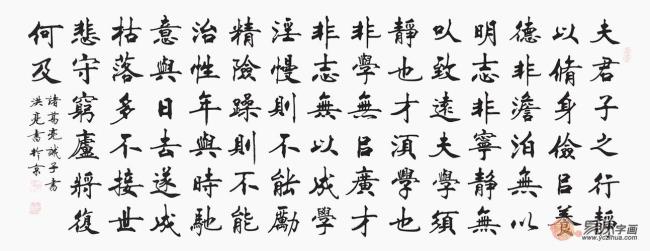 夫君子之行靜
以脩身儉㠯養
德非澹泊無以
明志非寧靜無
㠯致遠夫學須
靜也才湏學也
非學無㠯廣才
非志無以成學
淫慢則不能勵
精險躁則不能
治性年與時馳
意與日去遂成
枯落多不接世
悲守窮廬將復
何及
諸葛亮誡子書
洪亮書於京
易从字画
www.yczihua.com